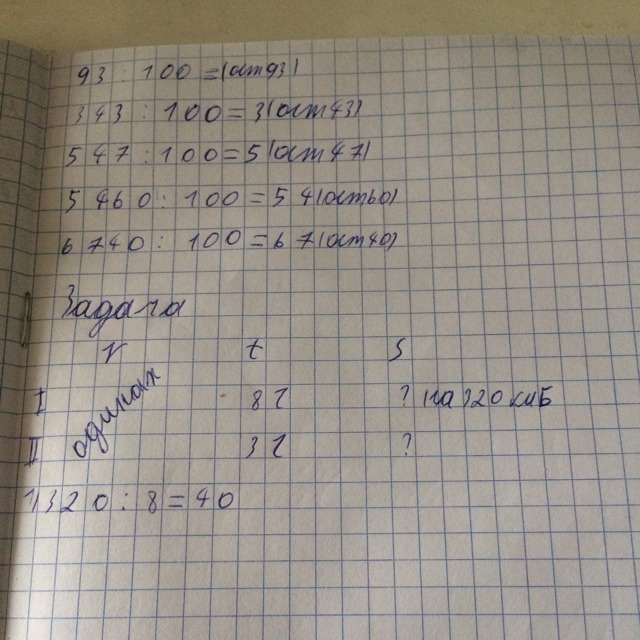 93 : 100 = (ост93)
343 : 100 = 3(ост43)
547 : 100 = 5(ост47)
5460 : 100 = 54(ост60)
6740 : 100 = 67(ост40)
Задача
V t S
I одинак 8ч ? на 320 км Б
II 3ч ?
1)320 : 8 = 40